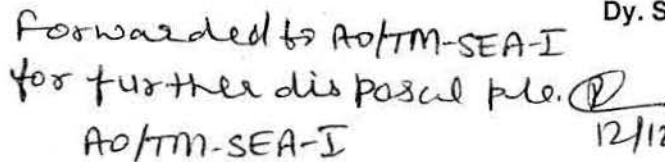 Dy. S
Forwarded to AO/TM-SEA-I
for further disposal ple.
12/12
AO/TM-SEA-I